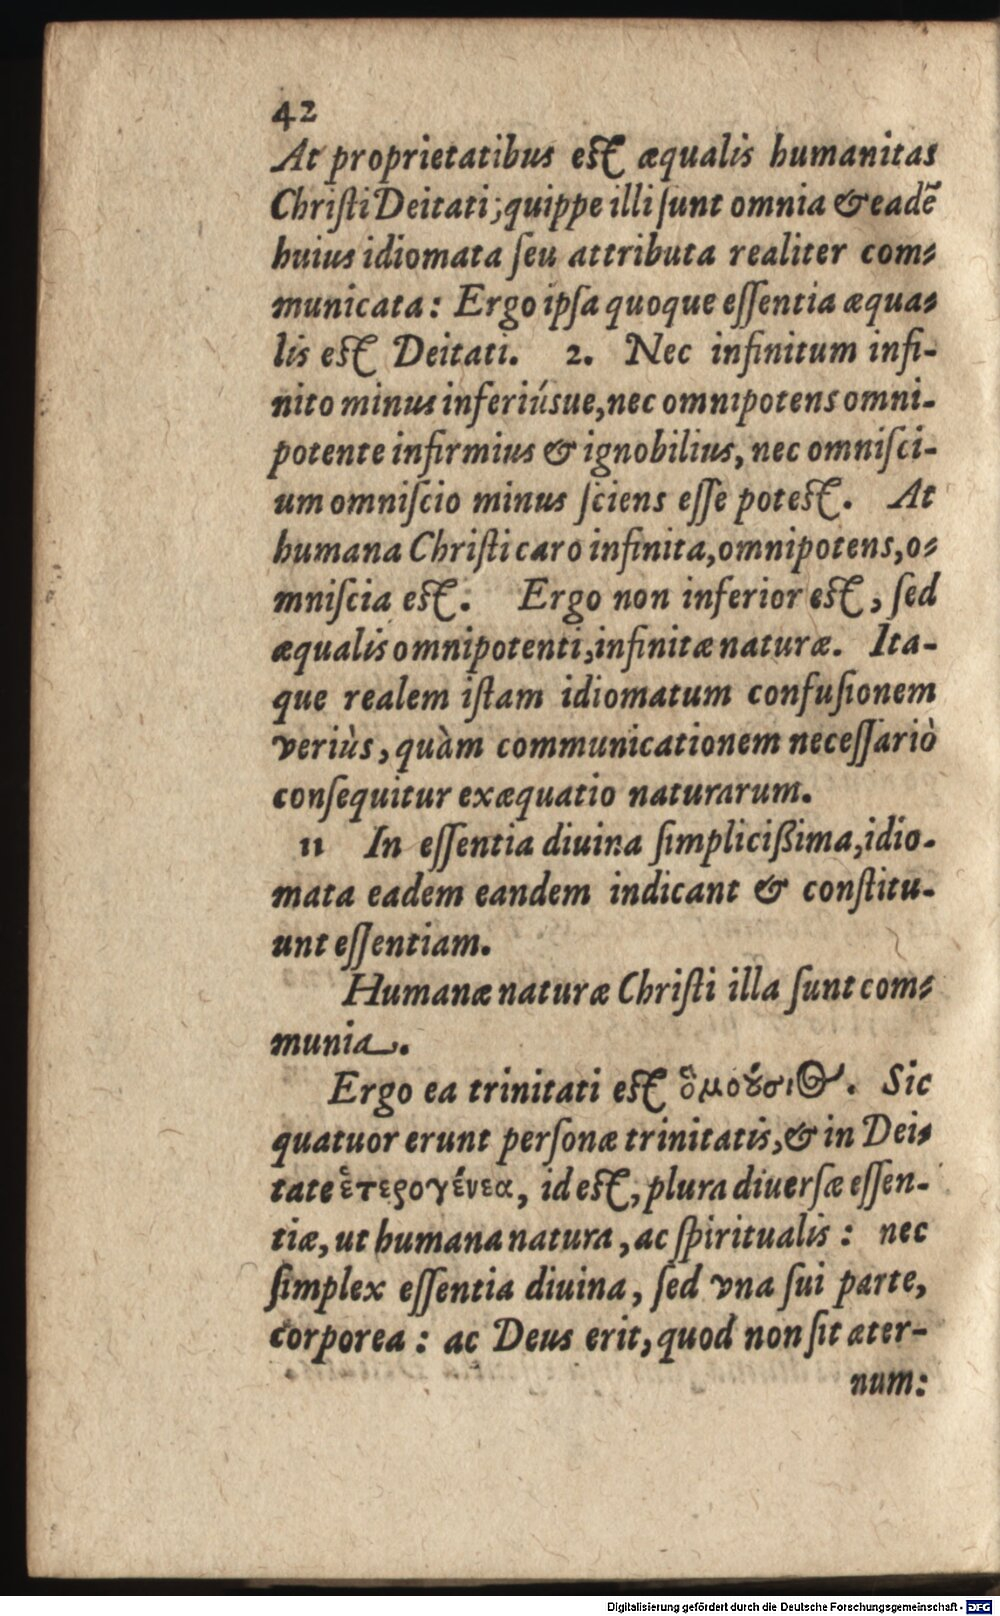 42
At proprietatibus est æqualis humanitas
Christi Deitati; quippe illi ſunt omnia & eadẽ
huius idiomata ſeu attributa realiter com⸗
municata: Ergo ipſa quoque eſſentia æqua⸗
lis est Deitati. 2. Nec infinitum infi-
nito minus inferiúsue, nec omnipotens omni-
potente infirmius & ignobilius, nec omniſci-
um omniſcio minus ſciens eſſe potest. At
humana Chriſti caro infinita, omnipotens, o⸗
mniſcia est. Ergo non inferior est, ſed
æqualis omnipotenti, infinitæ naturæ. Ita-
que realem iſtam idiomatum confuſionem
veriùs, quàm communicationem neceſſariò
conſequitur exæquatio naturarum.
11 In eſſentia diuina ſimpliciſsima, idio-
mata eadem eandem indicant & conſtitu-
unt eſſentiam.
Humanæ naturæ Chriſti illa ſunt com⸗
munia.
Ergo ea trinitati est ὁμοȣ́σιος. Sic
quatuor erunt perſonæ trinitatis, & in Dei⸗
tate ἑτερογένεα, id est, plura diuerſæ eſſen-
tiæ, ut humana natura, ac ſpiritualis: nec
ſimplex eſſentia diuina, ſed vna ſui parte,
corporea: ac Deus erit, quod non ſit æter-
num:
Digitalisierung gefördert durch die Deutsche Forschungsgemeinschaft - DFG